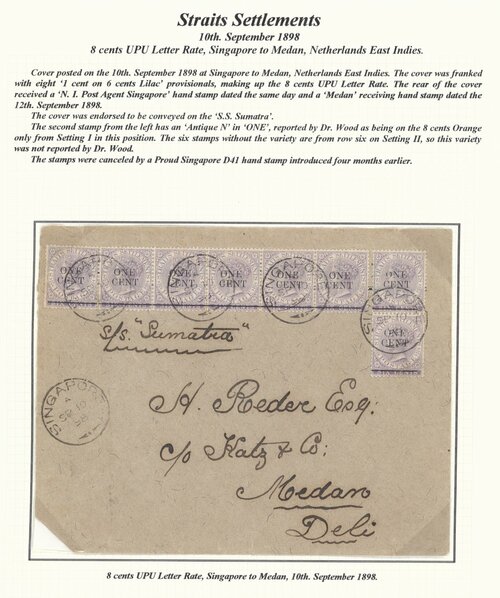 Straits Settlements
10th. September 1898
8 cents UPU Letter Rate, Singapore to Medan, Netherlands East Indies.
Cover posted on the 10th. September 1898 at Singapore to Medan, Netherlands East Indies. The cover was franked
with eight '1 cent on 6 cents Lilac' provisionals, making up the 8 cents UPU Letter Rate. The rear of the cover
received a 'N. I. Post Agent Singapore' hand stamp dated the same day and a 'Medan' receiving hand stamp dated the
12th. September 1898.
The cover was endorsed to be conveyed on the 'S.S. Sumatra'.
The second stamp from the left has an 'Antique N' in 'ONE', reported by Dr. Wood as being on the 8 cents Orange
only from Setting I in this position. The six stamps without the variety are from row six on Setting II, so this variety
was not reported by Dr. Wood.
The stamps were canceled by a Proud Singapore D41 hand stamp introduced four months earlier.
ONE CENT ONE CENT ONE CENT ONE CENT ONE CENT ONE CENT ONE CENT
SINGAPORE SINGAPORE SINGAPORE
SINGAPORE
ONE CENT
s/s. "Sumatra"
SINGAPORE
H. Reder Esq:
c/o Katz & Co:
Medan
Deli
8 cents UPU Letter Rate, Singapore to Medan, 10th. September 1898.